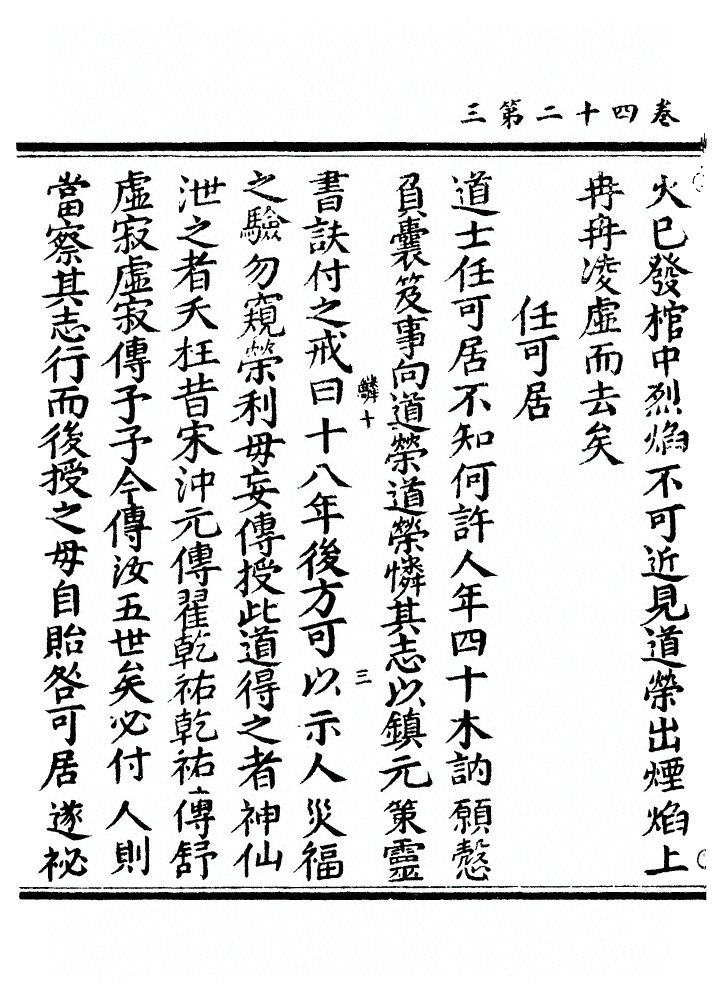 三第二十四卷
火已發棺中烈焰不可近見道榮出煙焰上
冉冉凌虛而去矣
任可居
道士任可居不知何許人年四十木訥願慤
負囊笈事向道榮道榮憐其志以鎮元策靈
書訣付之戒曰十八年後方可以示人災福
鱗十
三
之驗勿窺榮利毋妄傳授此道得之者神仙
泄之者夭枉昔宋沖元傳翟乾祐乾祐傳舒
虛寂虛寂傳予予今傳汝五世矣必付人則
當察其志行而後授之毋自貽咎可居遂祕